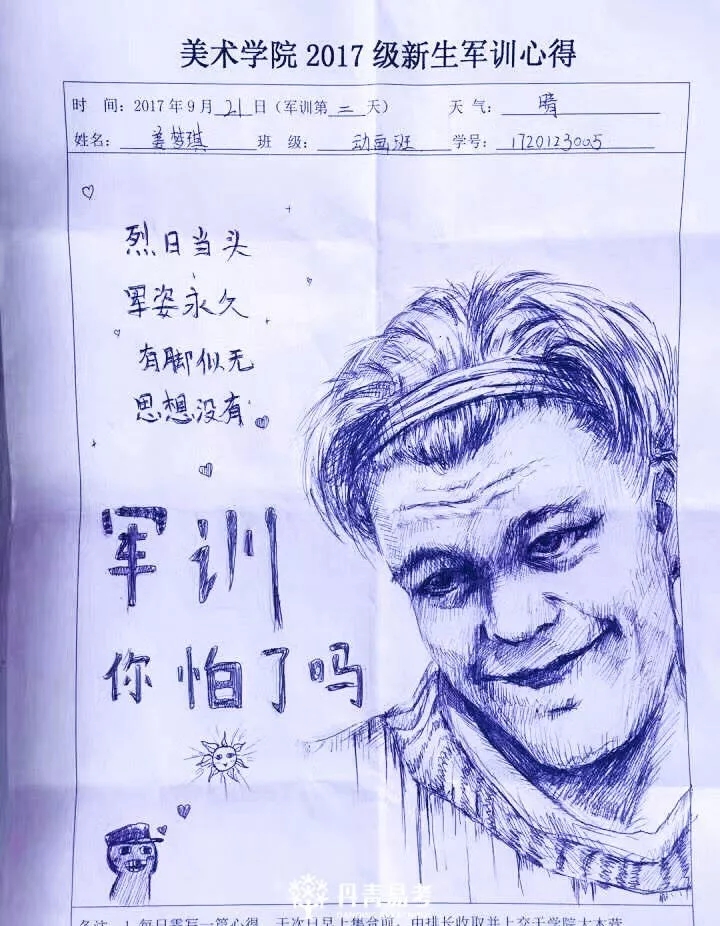 美术学院 2017 级新生军训心得
时 间: 2017 年 9 月 21 日 (军训第 二 天) 天 气: 晴
姓名: 姜梦琪 班 级: 动画班 学号: 1720123005
烈日当头
军姿永久
有脚似无
思想没有
军训
你怕了吗
丹青易考
备注: 1.每日需写一篇心得，于次日早上集合前，由排长收取并上交于学院大本营